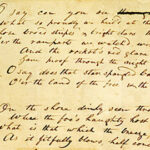 O say can you see
What so proudly we hail'd at the
hose broad stripes & bright stars th
er the ramparts we watch'd we
And the rocket's red glare
Gave proof through the night
O say does that star spangled ba
O'er the land of the free
On the shore dimly seen thro
Where the foe's haughty host
What is that which the breeze
As it fitfully blows, half con